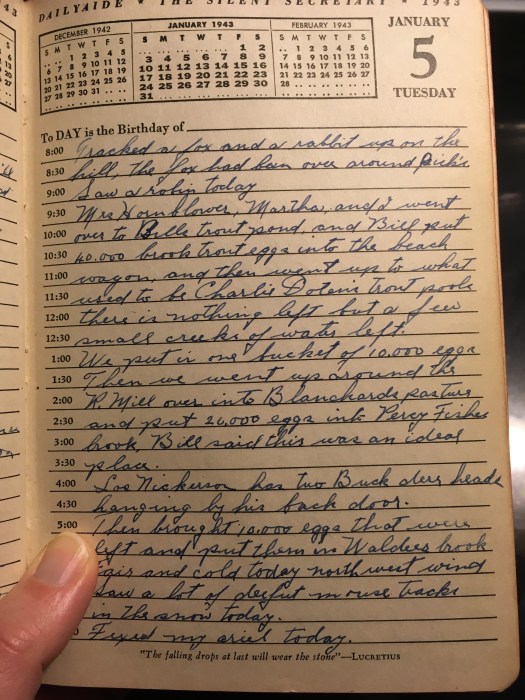 DAILYAIDE • THE SILENT SECRETARY • 1943
DECEMBER 1942
S M T W T F S
.. .. 1 2 3 4 5
6 7 8 9 10 11 12
13 14 15 16 17 18 19
20 21 22 23 24 25 26
27 28 29 30 31 .. ..
JANUARY 1943
S M T W T F S
.. .. .. .. .. 1 2
3 4 5 6 7 8 9
10 11 12 13 14 15 16
17 18 19 20 21 22 23
24 25 26 27 28 29 30
31 .. .. .. .. .. ..
FEBRUARY 1943
S M T W T F S
.. 1 2 3 4 5 6
7 8 9 10 11 12 13
14 15 16 17 18 19 20
21 22 23 24 25 26 27
28 .. .. .. .. .. ..
JANUARY
5
TUESDAY
To DAY is the Birthday of
8:00 Tracked a fox and a rabbit up on the
8:30 hill, the fox had been over around Dick's
9:00 Saw a robin today
9:30 Mrs Hornblower, Martha, and I went
10:00 over to Bills trout pond, and Bill put
10:30 40.000 brook trout eggs into the beach
11:00 wagon, and then went up to what
11:30 used to be Charlie Doten's trout pools
12:00 there is nothing left but a few
12:30 small creeks of water left.
1:00 We put in one bucket of 10.000 eggs
1:30 Then we went up around the
2:00 R. Mill over into Blanchards pasture
2:30 and put 20,000 eggs into Percy Fishers
3:00 brook, Bill said this was an ideal
3:30 place.
4:00 Nickerson has two Buck deer heads
4:30 hanging by his back door.
5:00 Then brought 10.000 eggs that were
left and put them in brook
Fair and cold today north west wind
Saw a lot of mouse tracks
in the snow today.
Fixed my ariel today.
"The falling drops at last will wear the stone"—LUCRETIUS